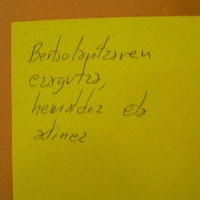 Bertolaritzaren
ezagutza,
herrialdez eta
adinez.